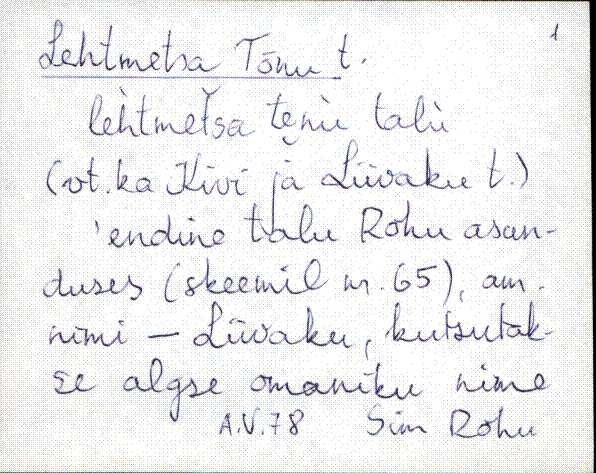 1
Lehtmetsa Tõnu t.
lèhtmet̆sa te̮nù talù
(vt. ka Kivi ja Liivaku t.)
'endine talu Rohu asan-
duses (skeemil nr. 65), am.
nimi – Liivaku, kutsutak-
se algse omaniku nime
A.V. 78 Sim Rohu